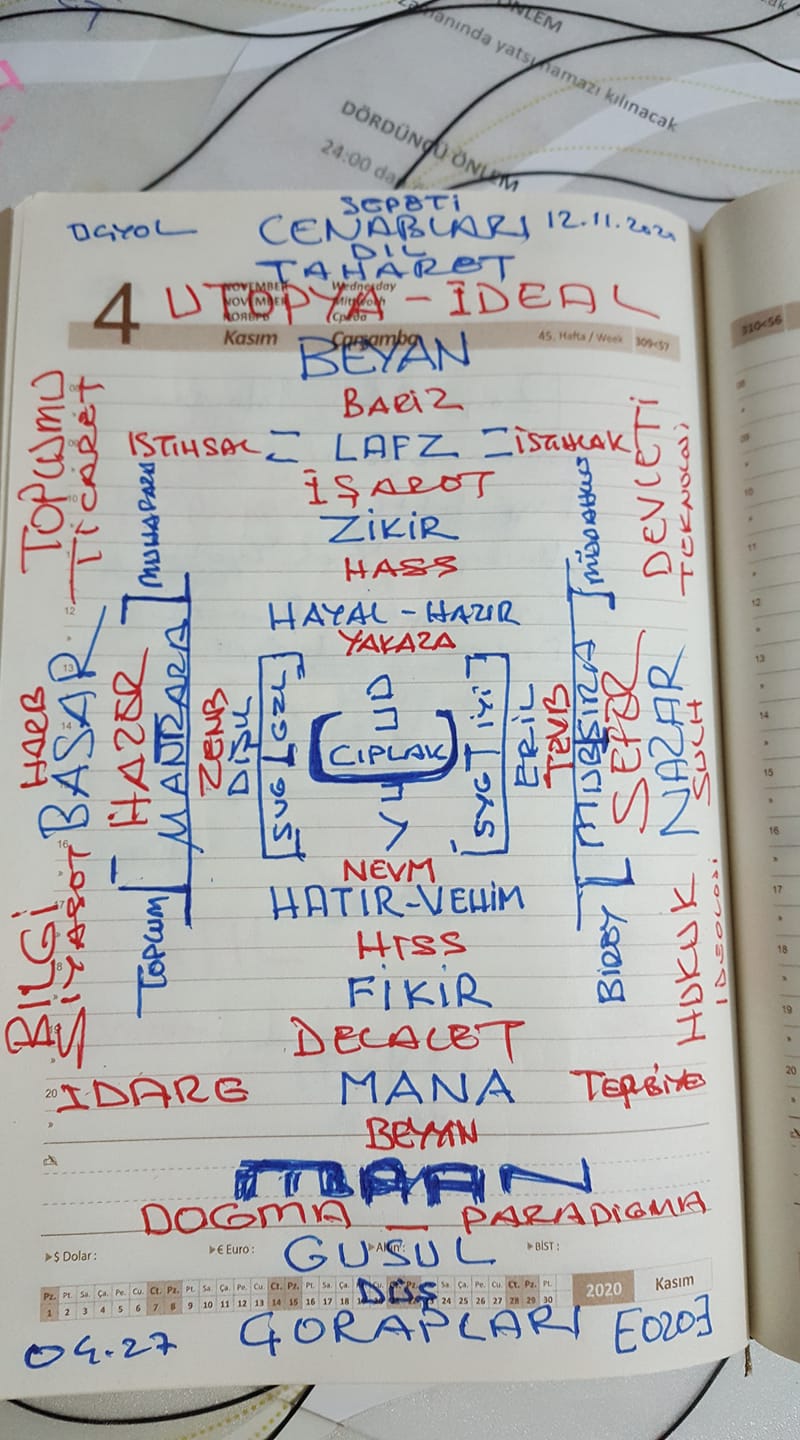 ÖNLEM
zamanında yatsı namazı kılınacak
DÖRDÜNCÜ ÖNLEM
24:00 dan
SEPETİ
CENABLARI 12.11.2020
DİL
TAHARET
4 NOVEMBER Wednesday
UTOPYA - İDEAL
NOVEMBER Mittwoch
НОЯБРЬ Среда
Kasım Çarşamba 45. Hafta / Week 309<57
310<56
BEYAN
BARİZ
İSTİHSAL = LAFZ = İSTİHLAK
İŞARET
ZİKİR
HASS
HAYAL - HAZIR
YAKAZA
TOPLUMU
TİCARET
DEVLETİ
TEKNOLOJİ
HARB
BASAR
HAZER
MANZARA
ZENB
DİŞİL
ÇIPLAK
ERİL
SEFER
NAZAR
SULH
NEVM
HATIR-VEHİM
HİSS
FİKİR
DELALET
TOPLUM
BİREY
BİLGİ
SİYASET
HUKUK
İDEOLOJİ
İDARE MANA TERBİYE
BEYAN
DOGMA - PARADİGMA
$ Dolar: € Euro: Altın: BİST:
GUSUL
Pz. Pt. Sa. Ça. Pe. Cu. Ct. Pz. Pt. Sa. Ça. Pe. Cu. Ct. Pz. Pt. Sa. Ça. Sa. Ça. Pe. Cu. Ct. Pz. Pt. 2020 Kasım
1 2 3 4 5 6 7 8 9 10 11 12 13 14 15 16 17 18 24 25 26 27 28 29 30
DÜŞ
ÇORAPLARI [020]
04.27